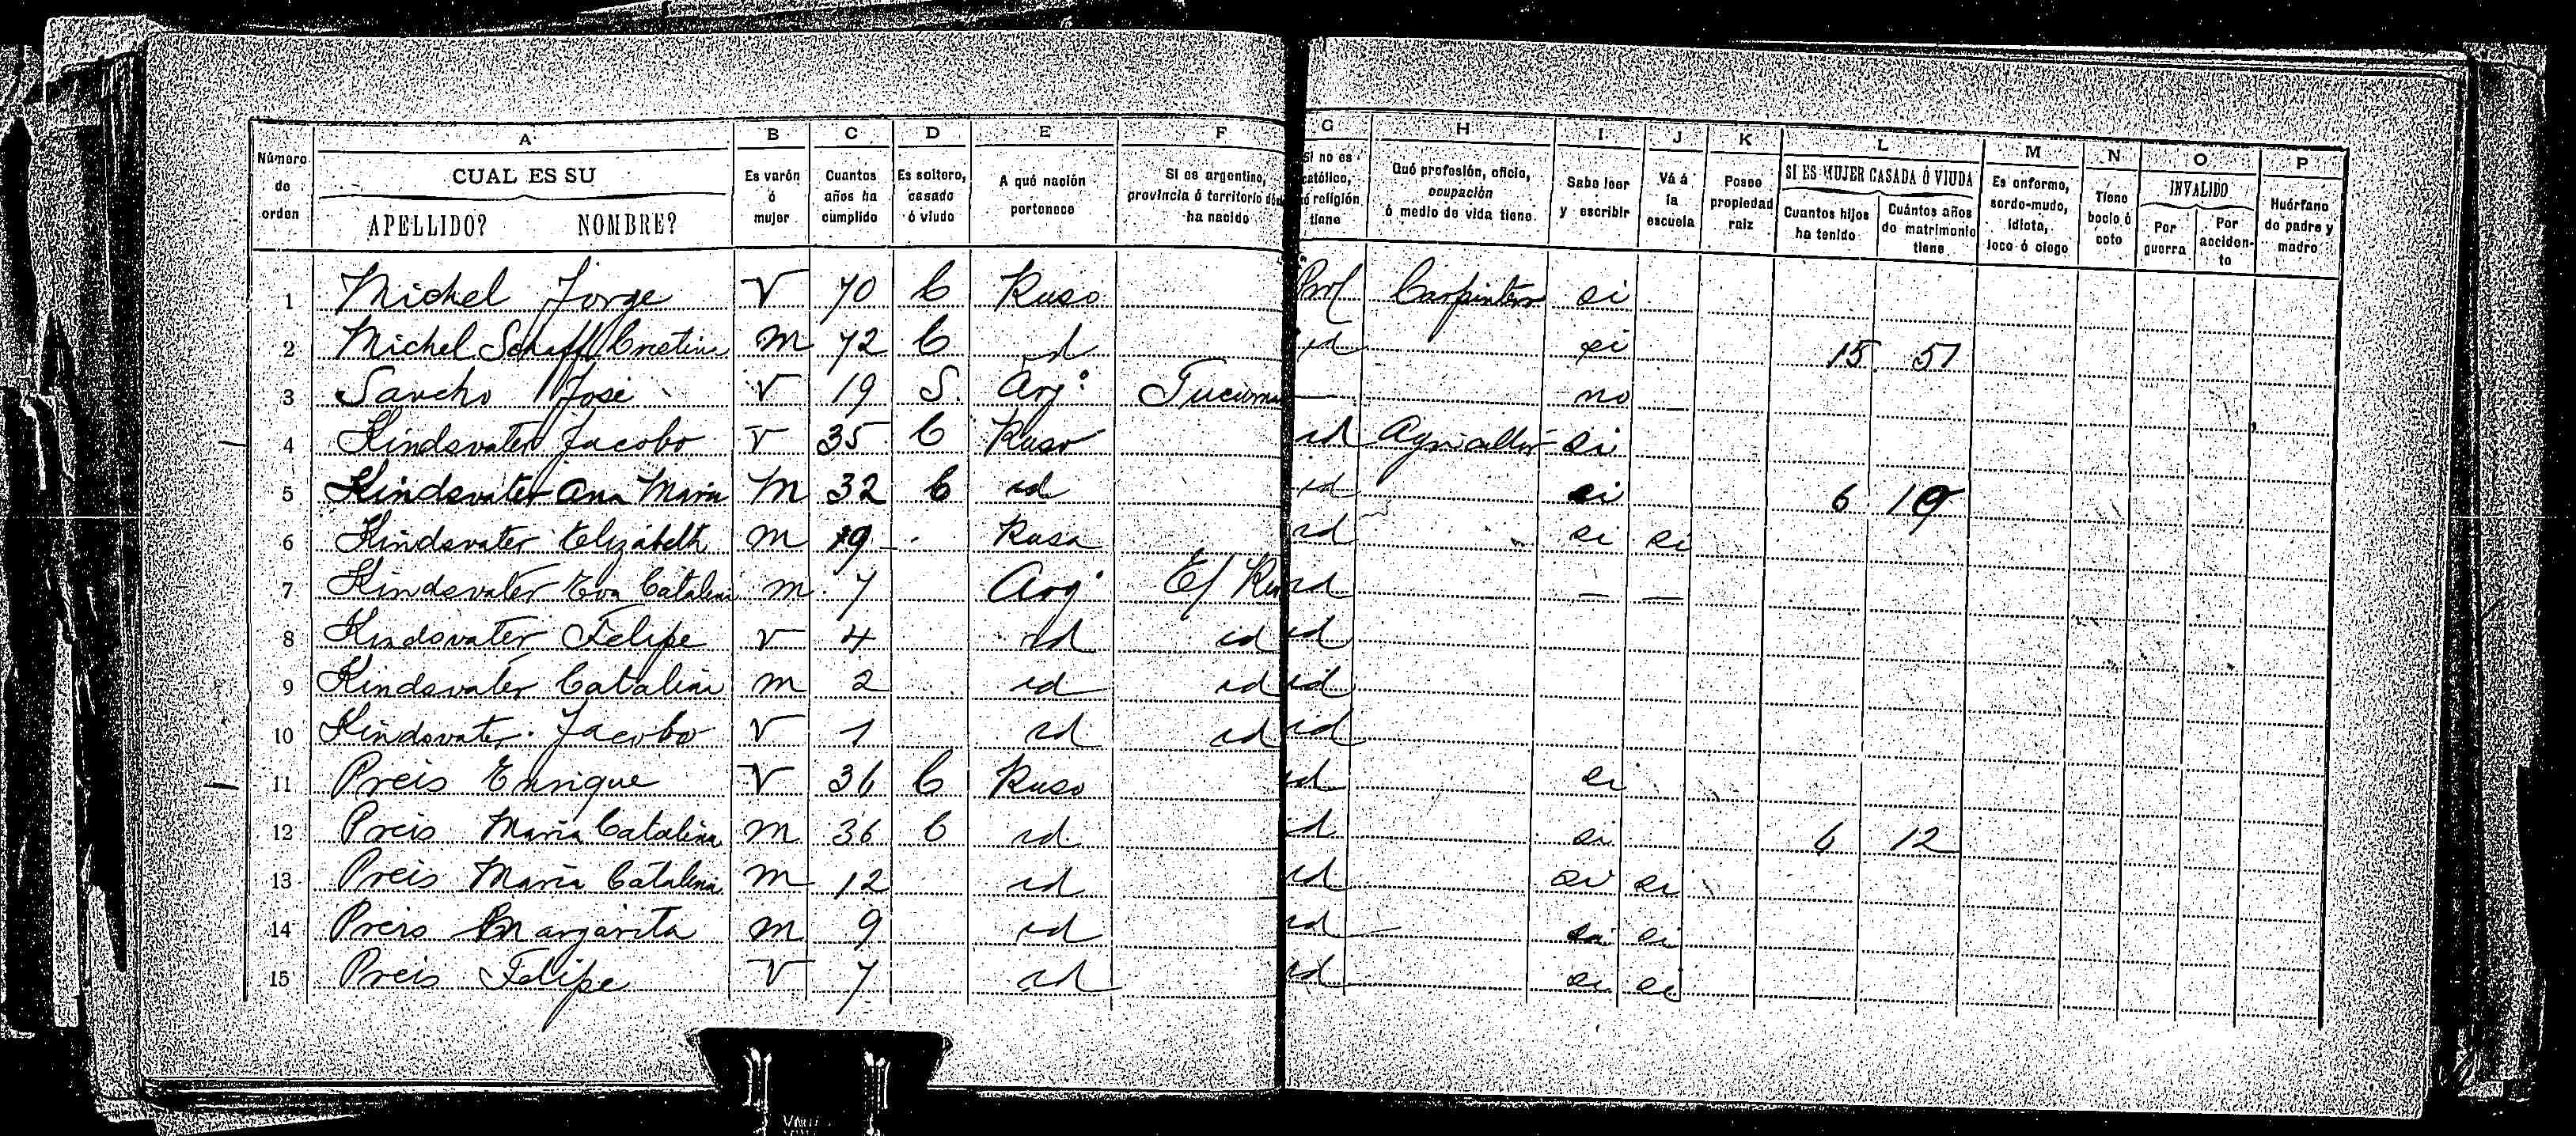 A B C D E F G H I J K L M N O P
Número de orden
CUAL ES SU
APELLIDO? NOMBRE?
Es varón ó mujer
Cuantos años ha cumplido
Es soltero, casado ó viudo
A qué nación pertenece
Si es argentino, provincia ó territorio ha nacido
Si no es católico, religión tiene
Qué profesión, oficio, ocupación ó medio de vida tiene
Sabe leer y escribir
Vá á la escuela
Posee propiedad raiz
SI ES MUJER CASADA Ó VIUDA
Cuantos hijos ha tenido
Cuántos años de matrimonio tiene
Es enfermo, sordo-mudo, idiota, loco ó ciego
Tiene bocio ó coto
INVALIDO
Por guerra
Por acciden-to
Huérfano de padre y madre
1 Michel Jorge V 70 C Ruso Prof Carpintero si
2 Michel Scheff Cristina M 72 C id id si 15 51
3 Sancho José V 19 S. Arg. Tucuma — no
4 Kindsvater Jacobo V 35 C Ruso id Agricultor si
5 Kindsvater Ana Maria M 32 C id id si 6 10
6 Kindsvater Elizabeth M 9 Rusa id si si
7 Kindsvater Eva Catalina M 7 Arg. E/ Rios id — —
8 Kindsvater Felipe V 4 id id id
9 Kindsvater Catalina M 2 id id id
10 Kindsvater Jacobo V 1 id id id
11 Preis Enrique V 36 C Ruso id si
12 Preis Maria Catalina M 36 C id id si 6 12
13 Preis Maria Catalina M 12 id id si si
14 Preis Margarita M 9 id id si si
15 Preis Felipe V 7 id id si si